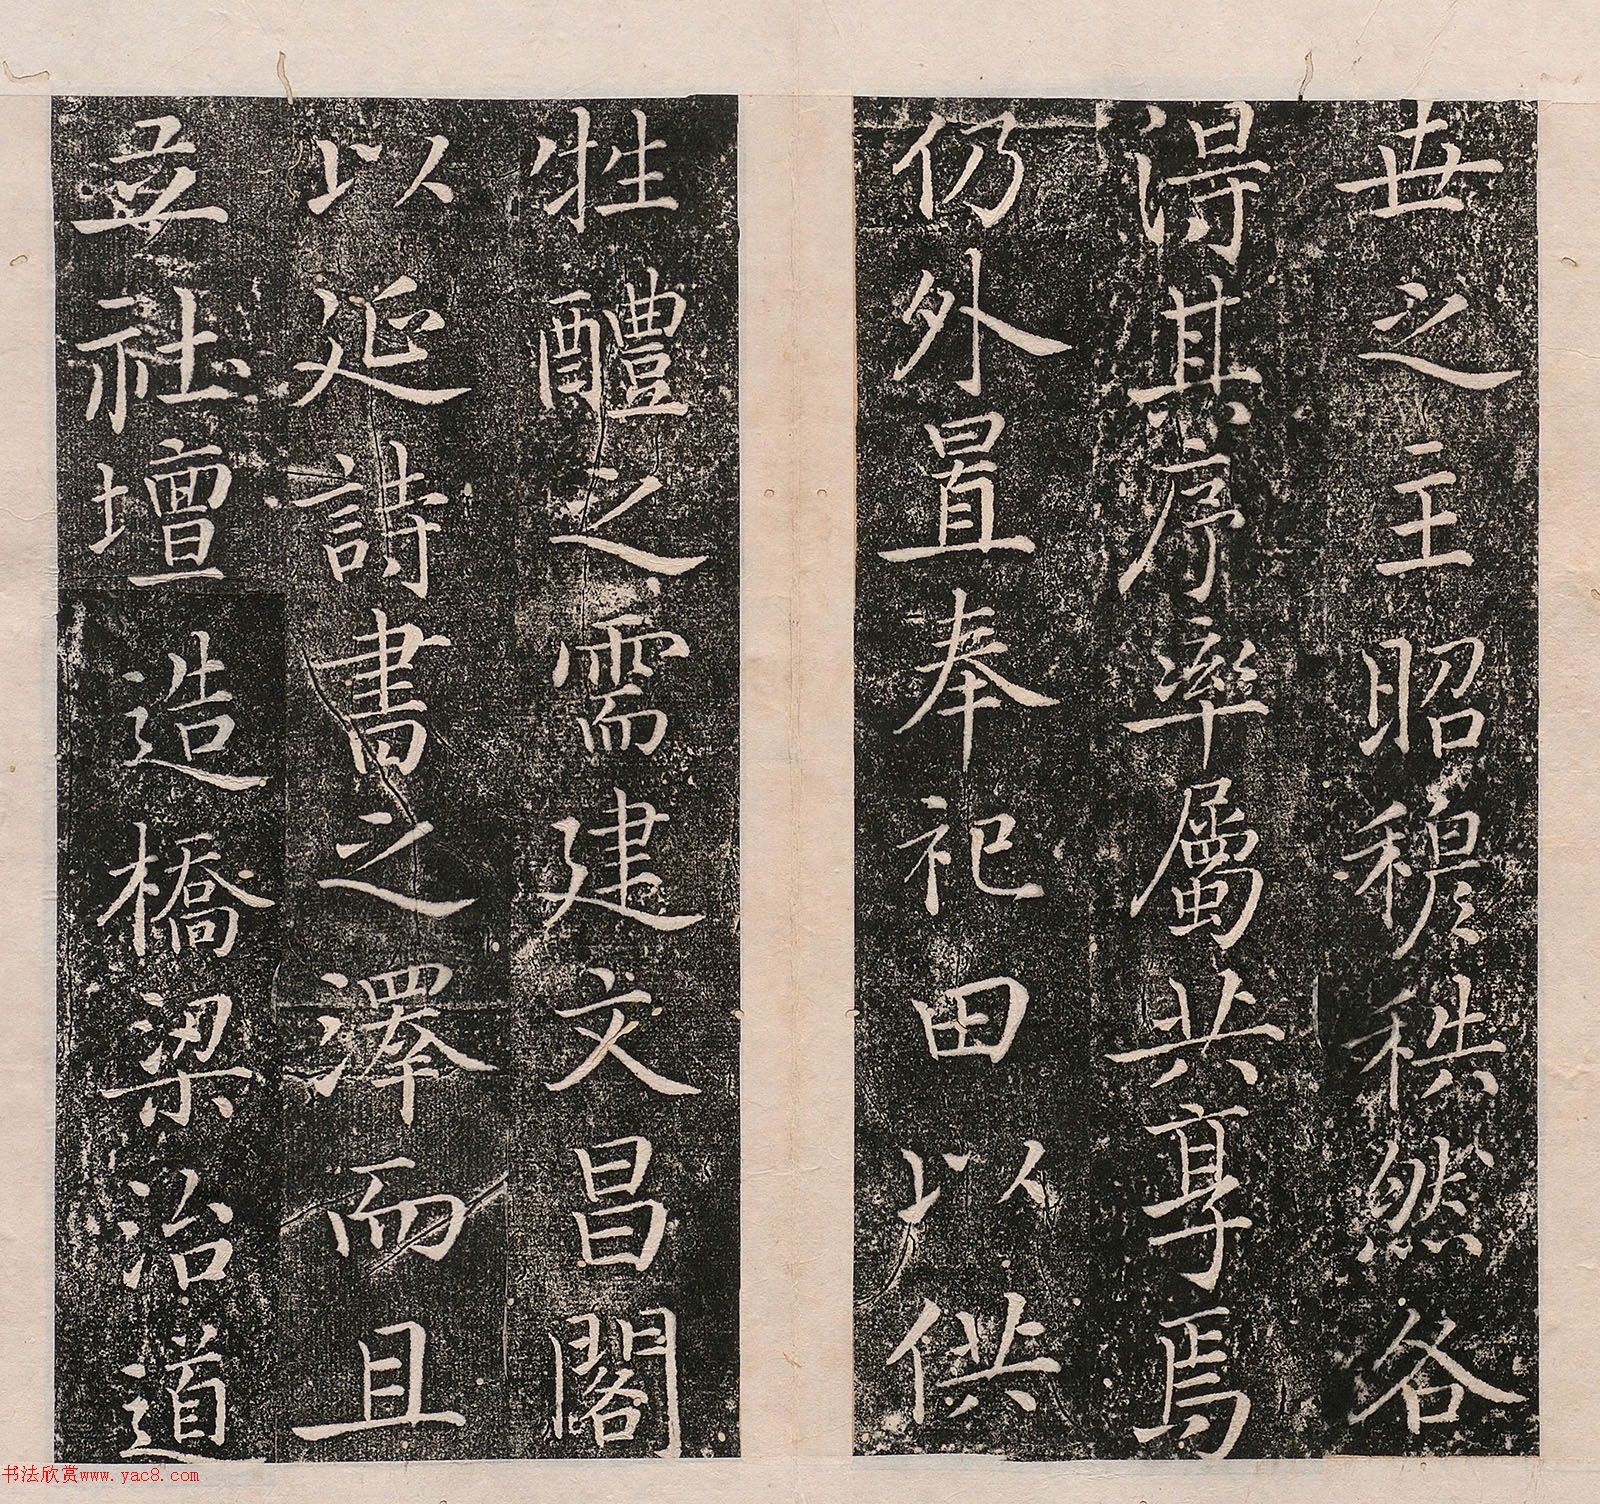 世之主昭穆秩然各
得其序率屬共享焉
仍外置奉祀田以供
牲醴之需建文昌閣
以延詩書之澤而且
立社壇造橋梁治道
书法欣赏www.yac8.com